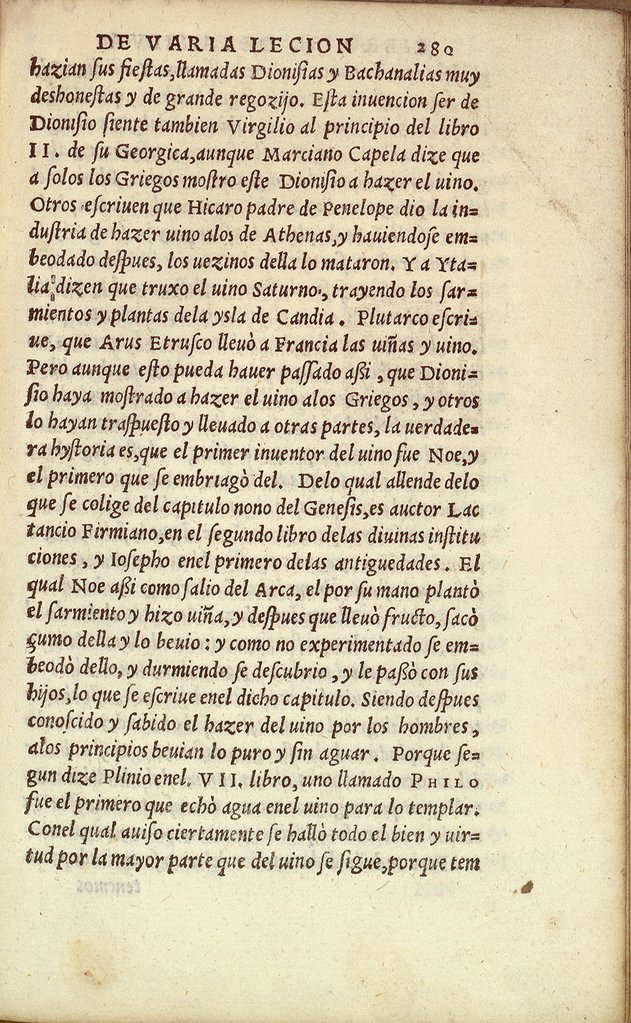 DE VARIA LECION 280
hazian ſus fieſtas,llamadas Dioniſias y Bachanalias muy
deshoneſtas y de grande regozijo. Eſta inuencion ſer de
Dioniſio ſiente tambien Virgilio al principio del libro
II. de ſu Georgica,aunque Marciano Capela dize que
a ſolos los Griegos moſtro eſte Dioniſio a hazer el uino.
Otros eſcriuen que Hicaro padre de Penelope dio la in=
duſtria de hazer uino alos de Athenas,y hauiendoſe em=
beodado deſpues, los uezinos della lo mataron. Y a Yta=
lia dizen que truxo el uino Saturno, trayendo los ſar=
mientos y plantas dela ysla de Candia. Plutarco eſcri=
ue, que Arus Etruſco lleuò a Francia las uiñas y uino.
Pero aunque eſto pueda hauer paſſado aßi, que Dioni=
ſio haya moſtrado a hazer el uino alos Griegos, y otros
lo hayan traſpueſto y lleuado a otras partes, la uerdade=
ra hyſtoria es,que el primer inuentor del uino fue Noe,y
el primero que ſe embriagò del. Delo qual allende delo
que ſe colige del capitulo nono del Geneſis,es auctor Lac
tancio Firmiano,en el ſegundo libro delas diuinas inſtitu
ciones, y Ioſepho enel primero delas antiguedades. El
qual Noe aßi como ſalio del Arca, el por ſu mano plantò
el ſarmiento y hizo uiña,y deſpues que lleuò fructo, ſacò
çumo della y lo beuio: y como no experimentado ſe em=
beodò dello, y durmiendo ſe deſcubrio, y le paßò con ſus
hijos,lo que ſe eſcriue enel dicho capitulo. Siendo deſpues
conoſcido y ſabido el hazer del uino por los hombres,
alos principios beuian lo puro y ſin aguar. Porque ſe=
gun dize Plinio enel. VII. libro, uno llamado PHILO
fue el primero que echò agua enel uino para lo templar.
Conel qual auiſo ciertamente ſe hallò todo el bien y uir=
tud por la mayor parte que del uino ſe ſigue,porque tem